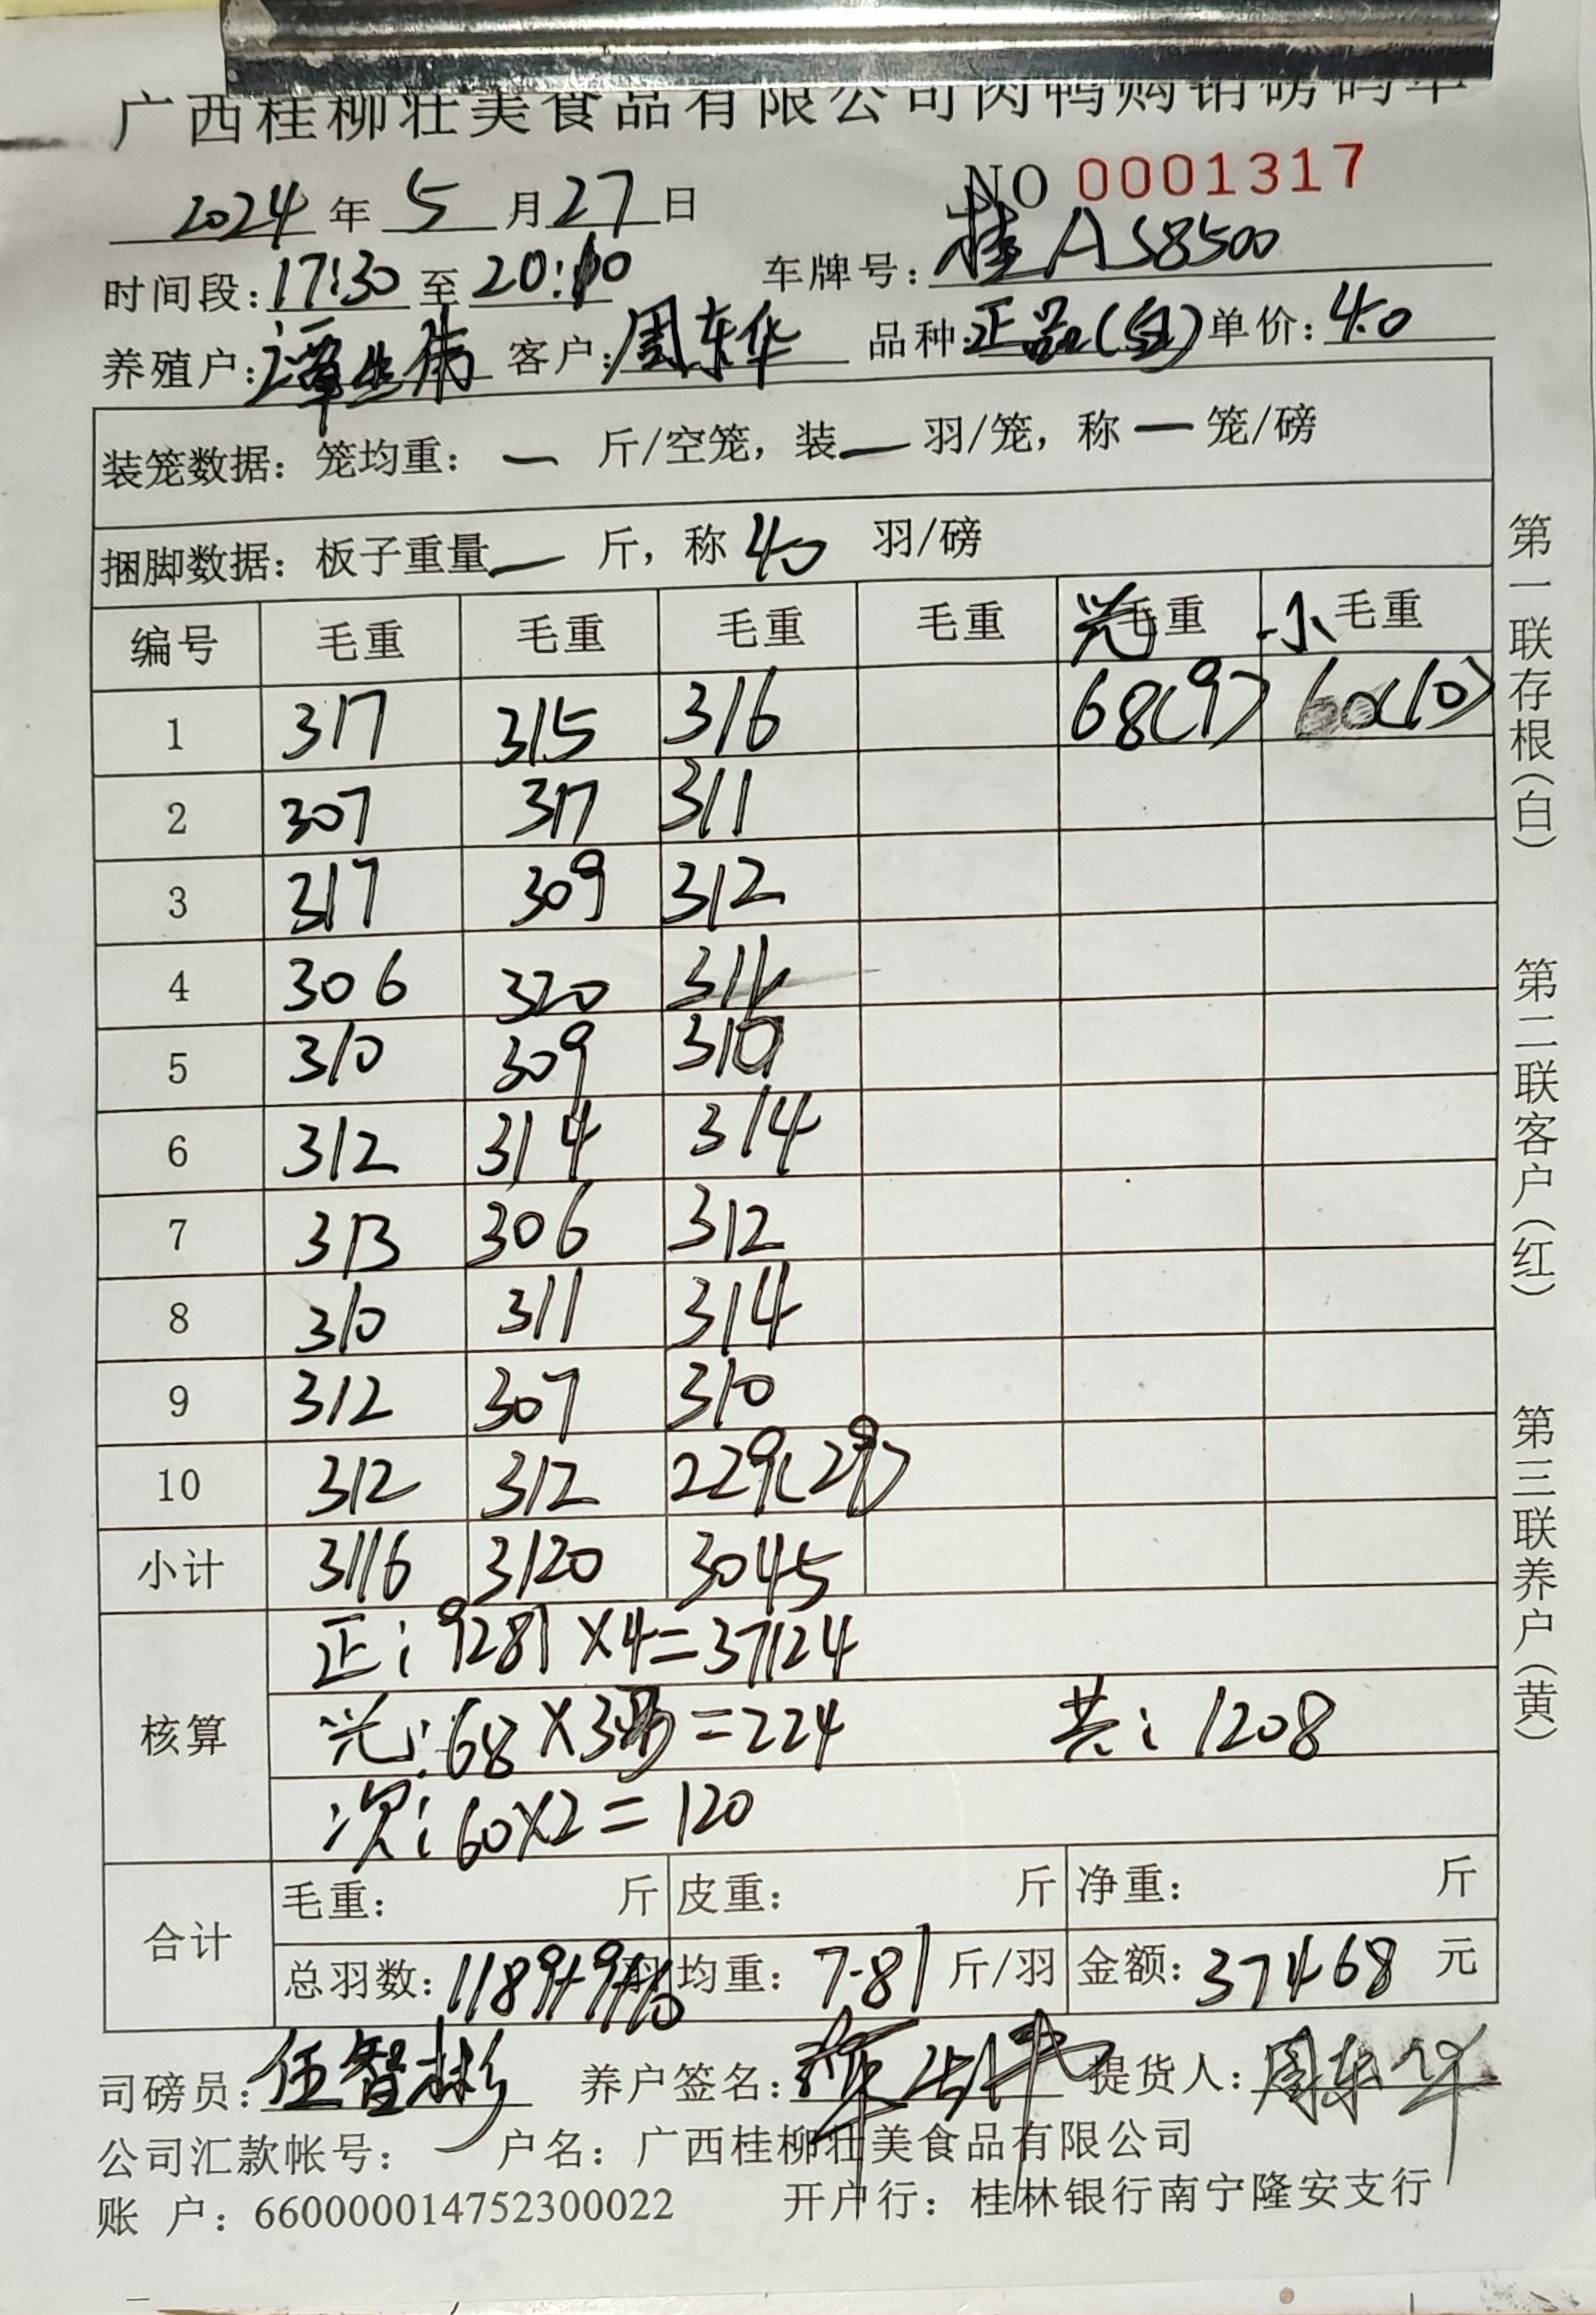 广西桂柳壮美食品有限公司肉鸭购销磅码单
NO 0001317
2024 年 5 月 27 日
时间段: 17:30 至 20:10 车牌号: 桂AS8500
养殖户: 客户: 周东华 品种: 正品(白) 单价: 4.0
装笼数据: 笼均重: — 斤/空笼, 装 — 羽/笼, 称 — 笼/磅
捆脚数据: 板子重量 — 斤, 称 40 羽/磅
编号 毛重 毛重 毛重 毛重 毛重 小 毛重
1 317 315 316 68(9) 60(10)
2 307 317 311
3 317 309 312
4 306 320
5 310 309 310
6 312 314 314
7 313 306 312
8 310 311 314
9 312 307 310
10 312 312 229(29)
小计 3116 3120 3045
核算
正: 9281×4=37124
:68× =224 共: 1208
次: 60×2=120
合计
毛重: 斤 皮重: 斤 净重: 斤
总羽数: 1189+9+10 均重: 7.81 斤/羽 金额: 37468 元
司磅员: 任智彬 养户签名: 提货人: 周东华
公司汇款帐号: 户名: 广西桂柳壮美食品有限公司
账 户: 660000014752300022 开户行: 桂林银行南宁隆安支行
第一联存根(白) 第二联客户(红) 第三联养户(黄)